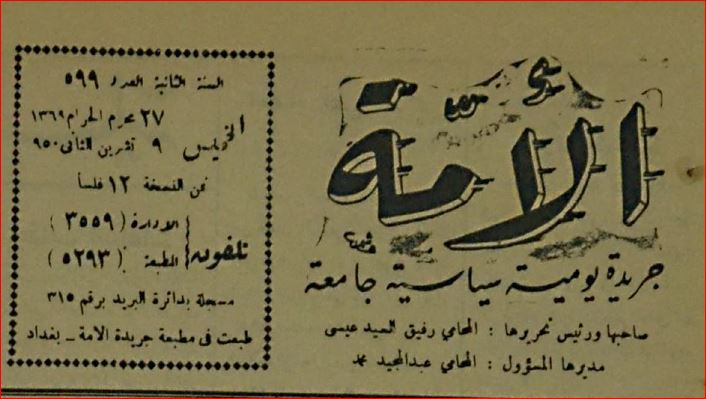 الأمة
جريدة يومية سياسية جامعة
صاحبها ورئيس تحريرها : المحامي رفيق السيد عيسى
مديرها المسؤول : المحامي عبدالمجيد محمد
السنة الثانية العدد ٥٩٩
الخميس
٢٧ محرم الحرام ١٣٦٩
٩ تشرين الثانى ٩٥٠
ثمن النسخة ١٢ فلساً
تلفون
الادارة ( ٣٥٥٩ )
المطبعة : ( ٥٢٩٣ )
مسجلة بدائرة البريد برقم ٣١٥
طبعت فى مطبعة جريدة الامة ــ بغداد